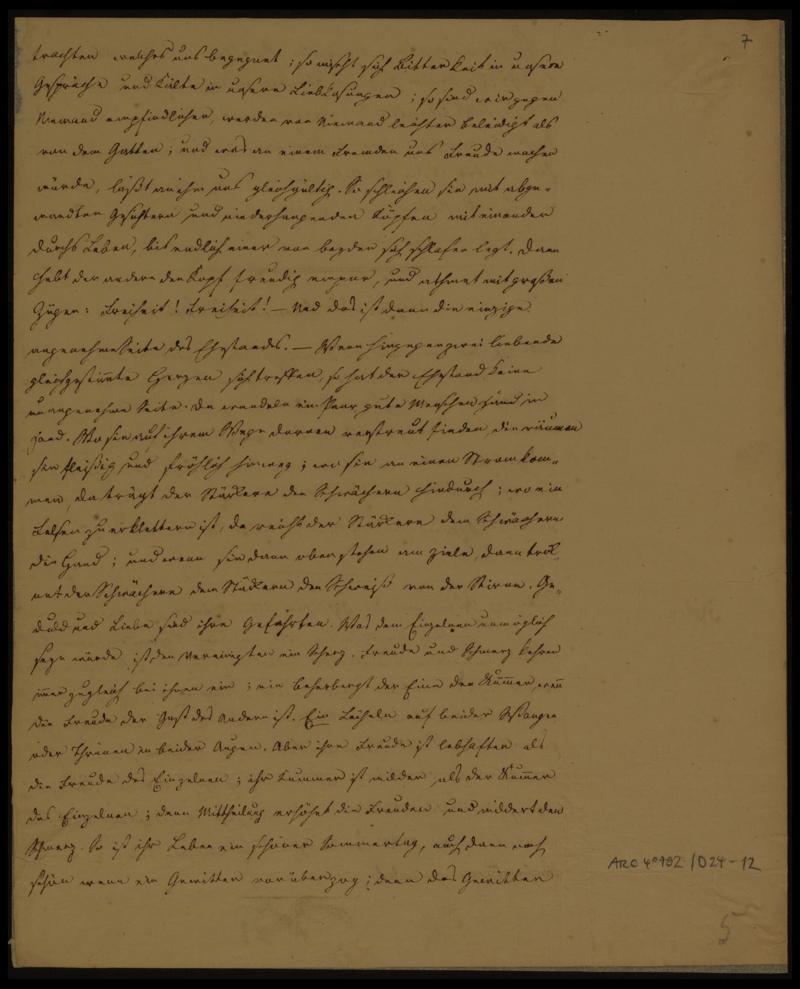 7
trachten welches uns begegnet; so mischt sich Bitterkeit in unsere
Gespräche und Kälte in unsere Liebkosungen; so sind wir gegen
Niemand empfindlicher, werden von Niemand leichter beleidigt als
von dem Gatten; und was an einem Fremden uns Freude machen
würde, läßt an ihm uns gleichgültig. So schleichen sie mit abge-
wandten Gesichtern und niederhangenden Köpfen mit einander
durchs Leben, bis endlich einer von beyden sich schlafen legt. Dann
hebt der andere den Kopf freudig empor, und athmet mit großen
Zügen: Freiheit! Freiheit! — Und das ist dann die einzige
angenehme Seite des Ehestandes. — Wenn hingegen zwei liebende
gleichgestimte Herzen sich treffen, so hat der Ehestand keine
unangenehme Seite. Da wandeln ein Paar gute Menschen Hand in
Hand. Wo sie auf ihrem Wege Dornen verstreut finden, die räumen
sie fleißig und fröhlich hinweg; wo sie an einen Strom kom-
men, da trägt der Stärkere den Schwächern hindurch; wo ein
Felsen zu erklettern ist, da reicht der Stärkere dem Schwächern
die Hand; und wenn sie dann oben stehen am Ziele, dann trok-
net der Schwächere dem Stärkern den Schweiß von der Stirne. Ge-
duld und Liebe sind ihre Gefährten. Was dem Einzelnen unmöglich
seyn würde, ist den Vereinigten ein Scherz. Freude und Schmerz kehren
immer zugleich bei ihnen ein; nie beherbergt der Eine den Kummer, wenn
die Freude der Gast des Andern ist. Ein Lächeln auf beider Wangen
oder Thränen in beider Augen. Aber ihre Freude ist lebhafter als
die Freude des Einzelnen; ihr Kummer ist milder, als der Kummer
des Einzelnen; denn Mittheilung erhöhet die Freuden und mildert den
Schmerz. So ist ihr Leben ein schöner Sommertag, auch dann noch
schön wenn ein Gewitter vorüberzog; denn das Gewitter
ARC 4° 192 /D24-12
5